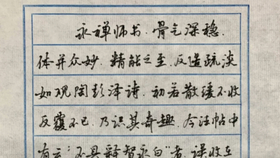 永禅师书，骨气深稳，
体并众妙，精能之至，反造疏淡
如观陶彭泽诗，初若散缓不收
反覆不已，乃识其奇趣，今法帖中
有云：“不具释智永白”者，误收在